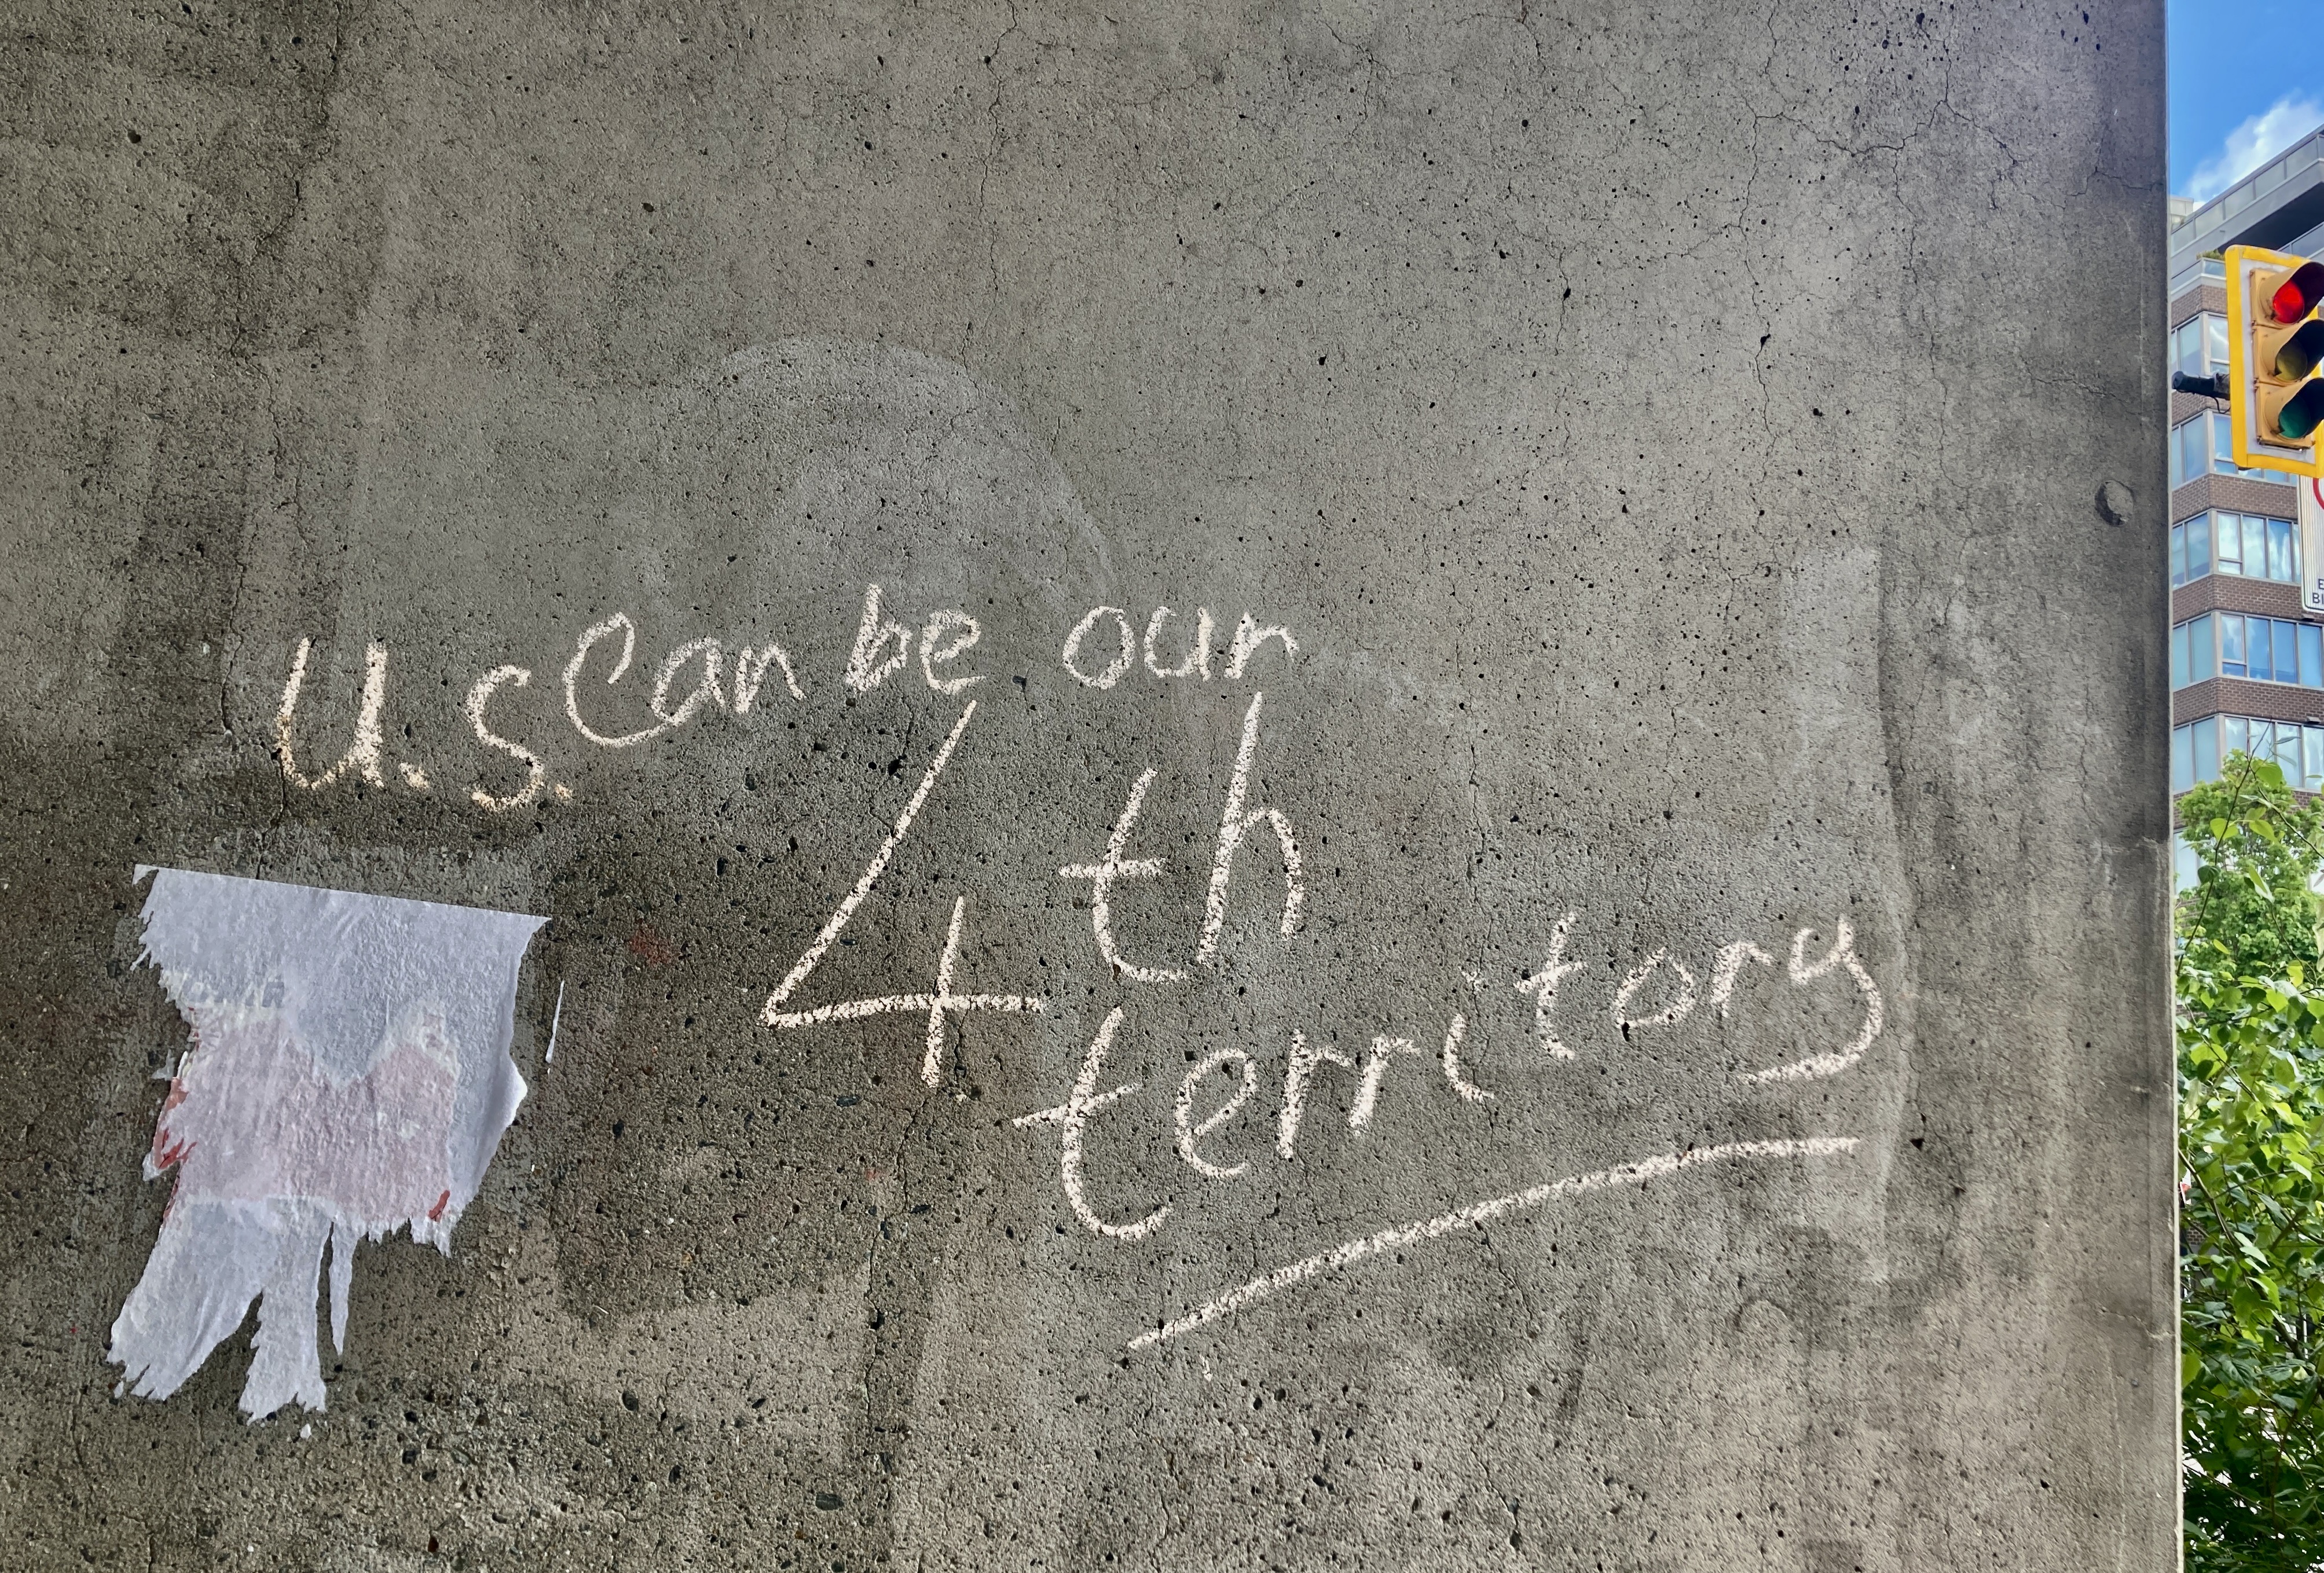 U.S. can be our
4th
territory